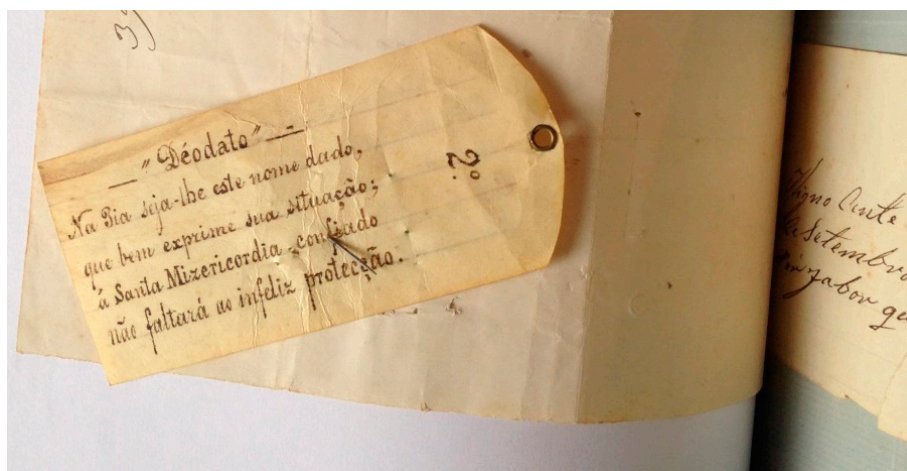 — "Déodato" —
Na Pia seja-lhe este nome dado,
que bem exprime sua situação;
á Santa Mizericordia confiado
não faltará ao infeliz protecção.
2º
Digno
Setembro
qu